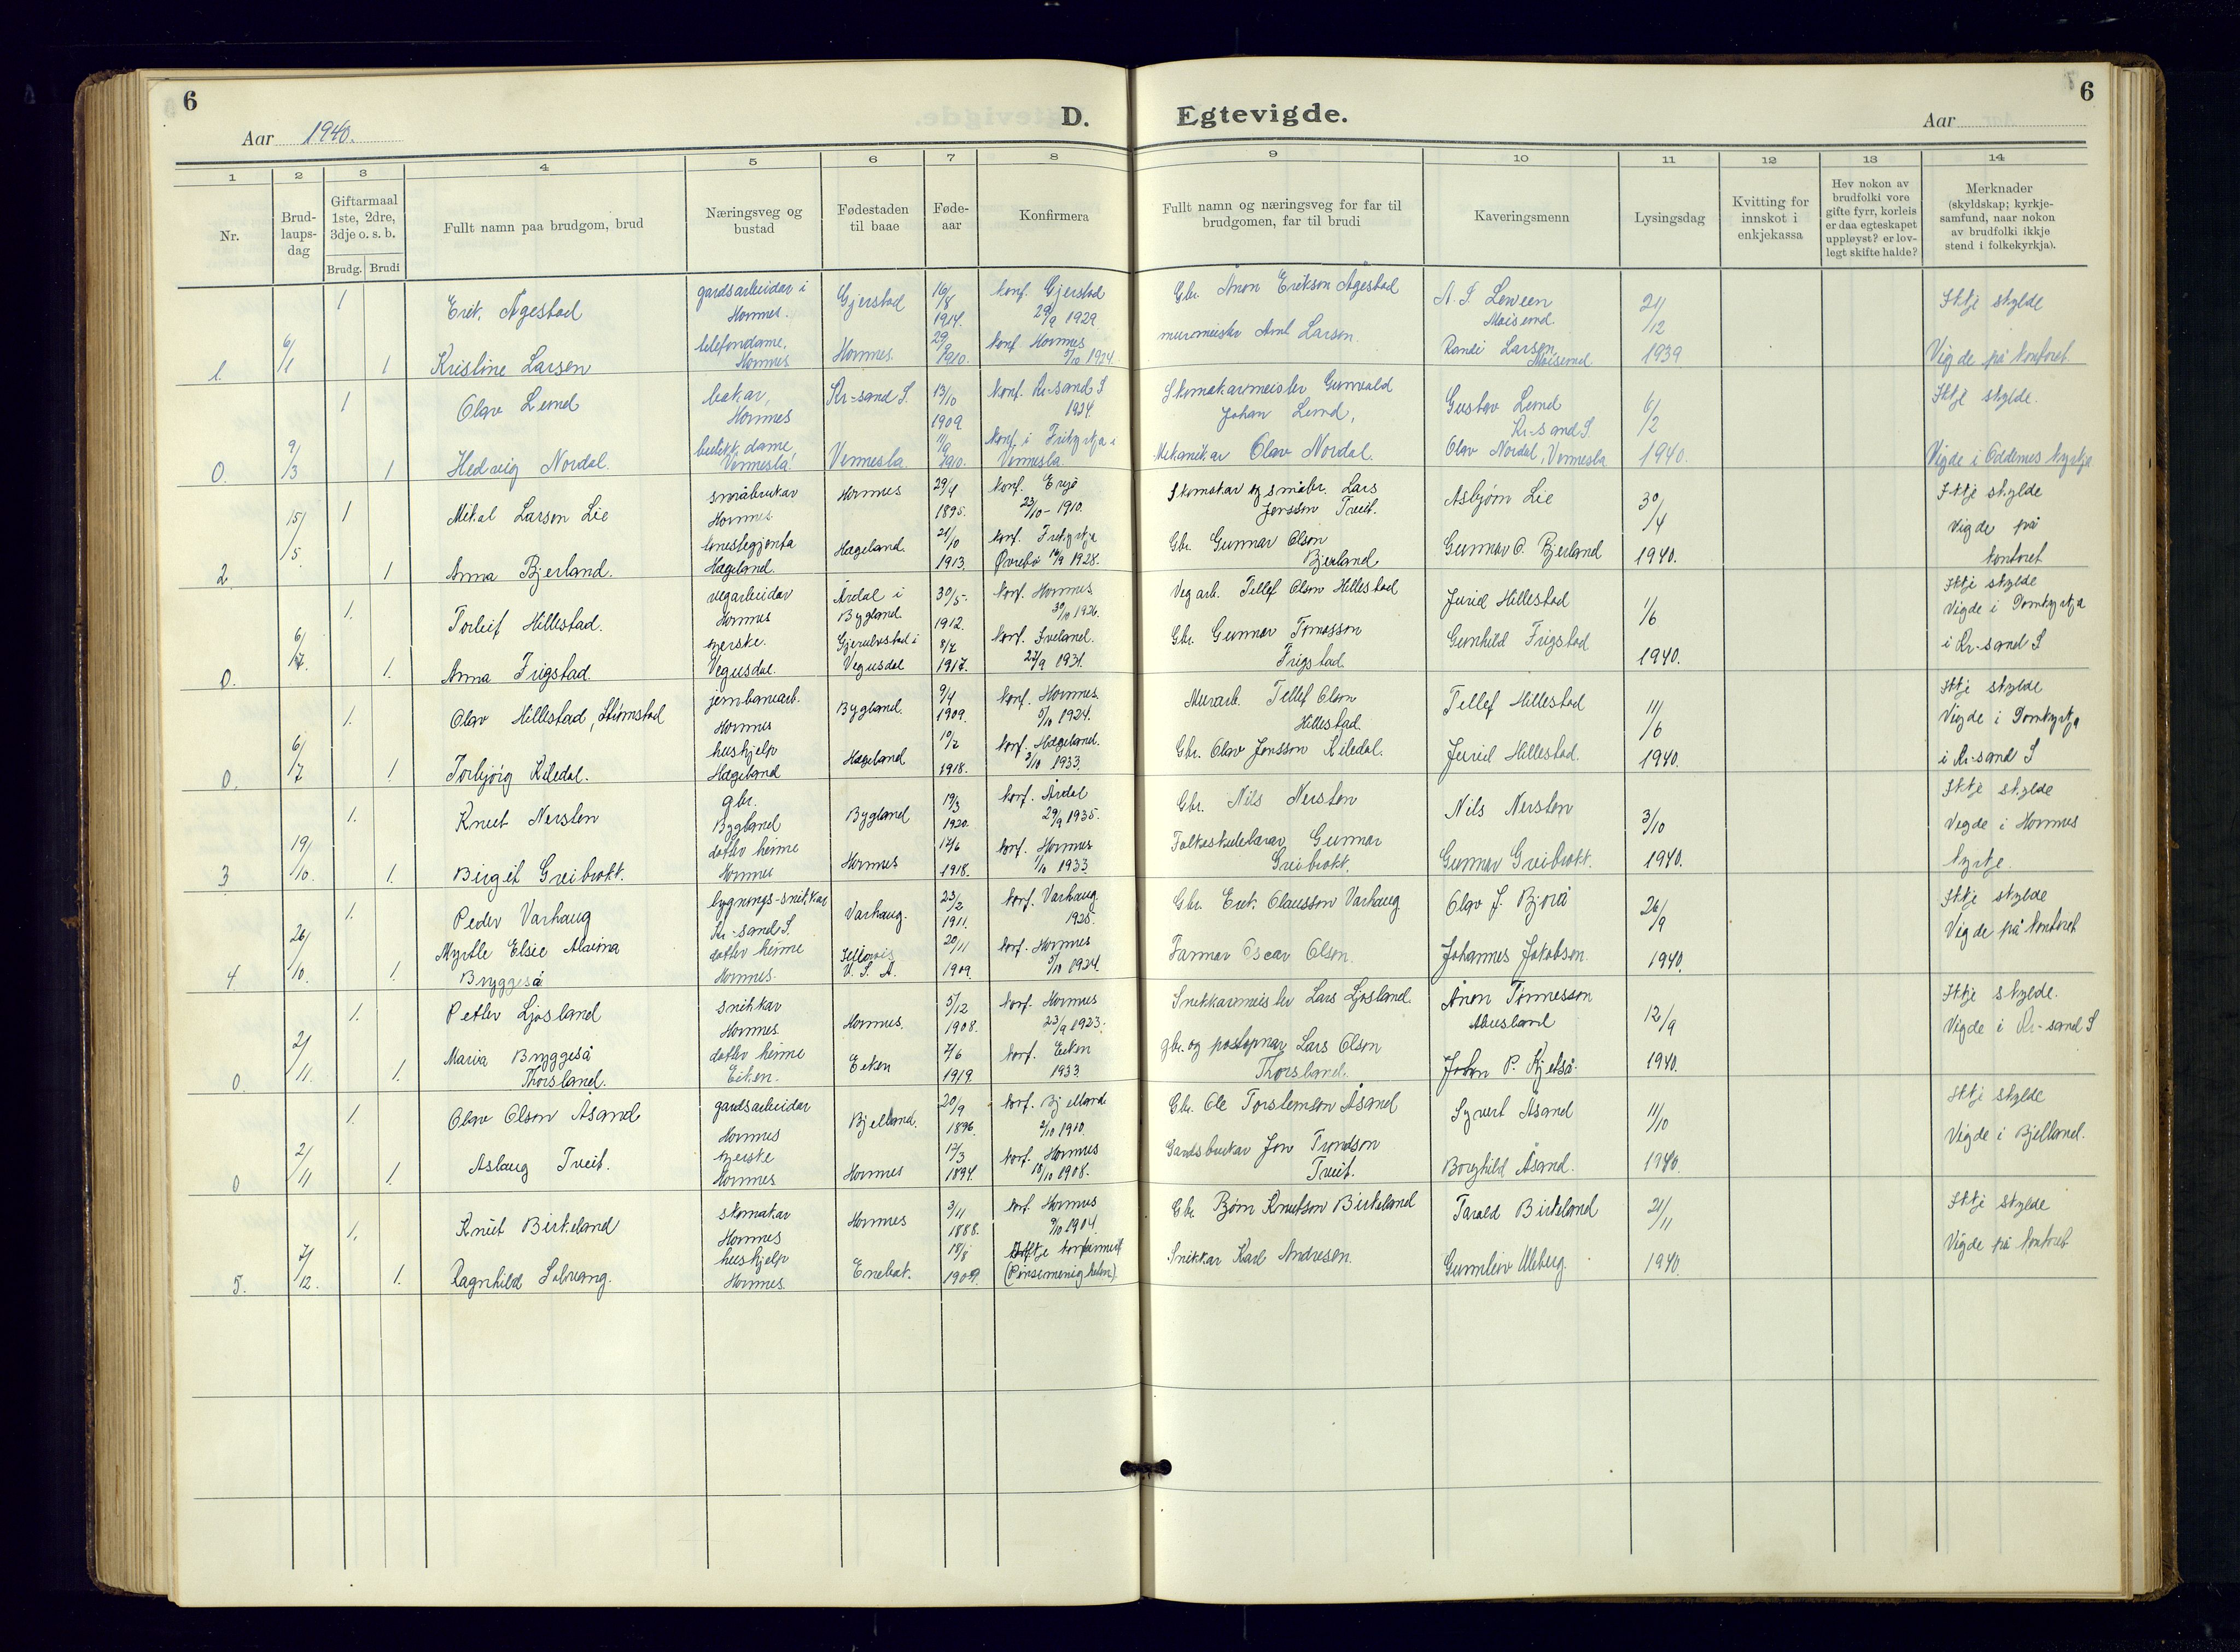 6
6
Aar 1940.
D. Egtevigde.
Aar
1 2 3 4 5 6 7 8 9 10 11 12 13 14
Nr.
Brud-
laups-
dag
Giftarmaal
1ste, 2dre,
3dje o. s. b.
Brudg. Brudi
Fullt namn paa brudgom, brud
Næringsveg og
bustad
Fødestaden
til baae
Føde-
aar
Konfirmera
Fullt namn og næringsveg for far til
brudgomen, far til brudi
Kaveringsmenn
Lysingsdag
Kvitting for
innskot i
enkjekassa
Hev nokon av
brudfolki vore
gifte fyrr, korleis
er daa egteskapet
uppløyst? er lov-
legt skifte halde?
Merknader
(skyldskap; kyrkje-
samfund, naar nokon
av brudfolki ikkje
stend i folkekyrkja).
1 Erik Ågestad gardsarbeidar i Hornnes. Gjerstad 16/8 1914. konf. Gjerstad 29/9 1929 Gbr. Ånon Erikson Ågestad A. S. Moisund. 21/12 Ikkje skylde
1. 6/1 1 Kristine Larsen telefondame, Hornnes Hornnes 29/9 1910. konf. Hornnes 5/10 1924. murmeister Arnt Larsen. Randi Larsen Moisund 1939 Vigde på kontoret
1 Olav Lund bakar, Hornnes Kr-sand S. 13/10 1909 konf. Kr-sand S 1924. Skomakarmeister Gunvald Johan Lund, Gustav Lund Kr-sand S. 6/2 Ikkje skylde.
0. 9/3 1 Hedvig Nordal. butikkdame, Vennesla. Vennesla 11/9 1910. konf. i Frikyrkja i Vennesla. Mekanikar Olav Nordal. Olav Nordal, Vennesla 1940. Vigde i Oddernes kyrkja
15/5. 1 Mikal Larson Lie småbrukar Hornnes Hornnes 29/4 1895. konf. Evje 23/10 - 1910. Skomakar og småbr. Lars Jensson Tveit. Asbjørn Lie 30/4 Ikkje skylde
2 1 Anna Bjerland. Hægeland. Hægeland. 21/10 1913. konf. Frikyrkja Øvrebø 16/9 1928. Gbr. Gunnar Olson Bjerland Gunnar O. Bjerland 1940. Vigde på kontoret
1. Torleif Hillestad. vegarbeidar Hornnes Årdal i Bygland. 30/5. 1912. konf. Hornnes 30/9 1926. Vegarb. Tellef Olson Hillestad Juriel Hillestad 1/6 Ikkje skylde
0. 6/7. 1. Anna Frigstad. syerske. Vegusdal. Gjerulvstad i Vegusdal 8/7 1917. konf. Iveland. 27/9 1931. Gbr. Gunnar Tomasson Frigstad Gunhild Frigstad 1940. Vigde i Domkyrkja i Kr-sand S
1. Olav Hillestad, Strømstad jernbanearb. Hornnes Bygland. 9/4 1909. konf. Hornnes. 5/10 1924. Murarb. Tellef Olson Hillestad. Tellef Hillestad 11/6 Ikkje skylde
0. 6/7 1 Torbjørg Kiledal. hushjelp Hægeland Hægeland 10/7 1918. konf. Hægeland. 2/10 1933. Gbr. Olav Jonsson Kiledal. Juriel Hillestad. 1940. Vigde i Domkyrkja i Kr-sand S
1. Knut Nersten gbr. Bygland Bygland 19/3 1920. konf. Årdal 29/9 1935. Gbr. Nils Nersten Nils Nersten 3/10 Ikkje skylde
3 19/10. 1. Birgit Greibrokk. dotter heime Hornnes Hornnes 17/6 1918. konf. Hornnes 1/10 1933 Folkeskulelærar Gunnar Greibrokk. Gunnar Greibrokk. 1940. Vigde i Hornnes kyrkje.
1. Peder Varhaug bygnings-snikkar Kr-sand S. Varhaug. 23/2 1911. konf. Varhaug. 1925. Gbr. Erik Olausson Varhaug Olav J. Bjorå 26/9 Ikkje skylde
4 26/10. 1. Myrtle Elsie Alvina Bryggeså dotter heime Hornnes. Illinois U. S. A. 20/11 1909 konf. Hornnes 5/10 1924. Farmar Oscar Olson. Johannes Jakobson 1940. Vigde på kontoret
1. Petter Ljosland snikkar Hornnes. Hornnes. 5/12 1908. konf. Hornnes 23/9 1923. Snikkarmeister Lars Ljosland. Ånon Tønnesson Abusland 12/9 Ikkje skylde.
0. 2/11. 1. Maria Bryggeså Thorsland. dotter heime Eiken. Eiken 7/6 1919. konf. Eiken 1933 gbr. og postopnar Lars Olson Thorsland. John P. Kjetså. 1940. Vigde i Kr-sand S
1. Olav Olson Åsand gardsarbeidar Hornnes Bjelland. 20/9 1896. konf. Bjelland 2/10 1910. Gbr. Ole Torstenson Åsand Syvert Åsand 11/10 Ikkje skylde
0 2/11 1. Aslaug Tveit. syerske Hornnes Hornnes 17/3 1894. konf. Hornnes 18/10 1908. Gardsbrukar Jon Trondson Tveit. Borghild Åsand. 1940. Vigde i Bjelland.
1. Knut Birkeland skomakar Hornnes Hornnes 3/11 1888. konf. Hornnes 9/10 1904. Gbr Bjørn Knutson Birkeland Tarald Birkeland 21/11 Ikkje skylde
5. 7/12. 1. Ragnhild Solvang. hushjelp Hornnes. Enebak. 18/8 1909. Ikkje konfirmert (Pinsemenigheten). Snikkar Karl Andresen. Gunnleiv Uleberg. 1940. Vigde på kontoret